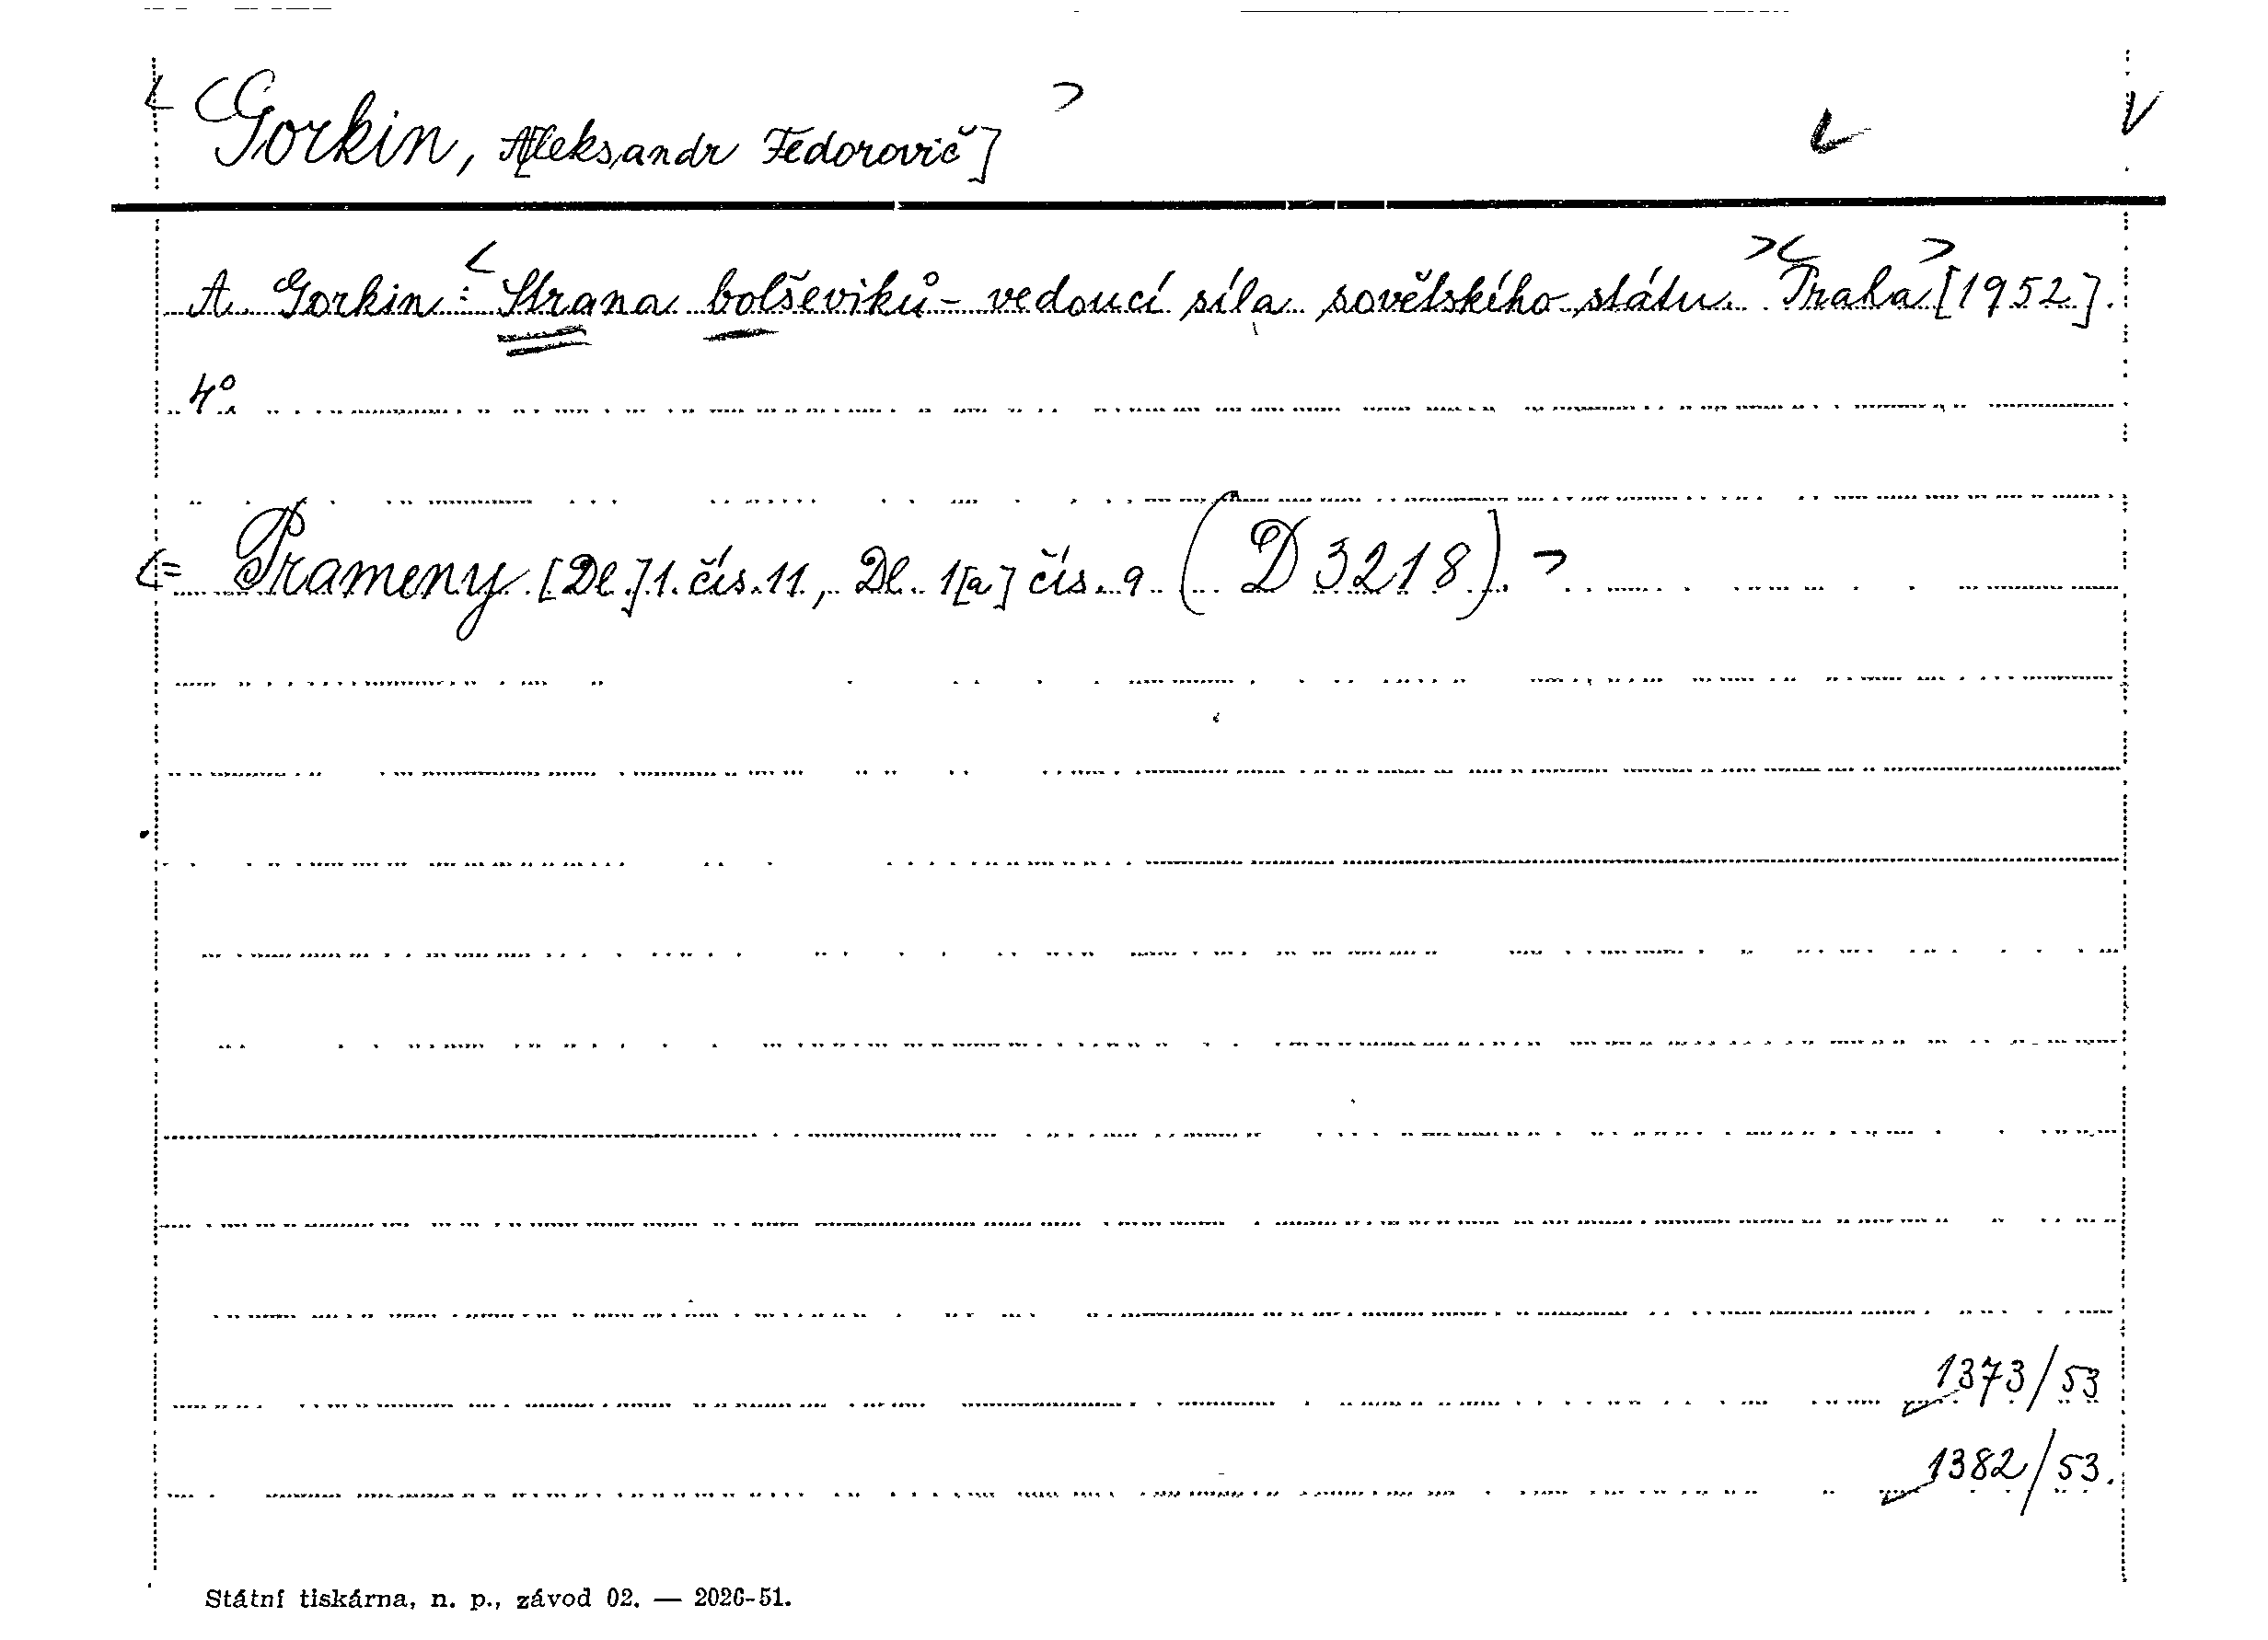 Gorkin, A[leksandr Fedorovič]
A. Gorkin: Strana bolševiků – vedoucí síla sovětského státu. Praha [1952].
4°.
= Prameny [Dl.] 1. čís. 11, Dl. 1[a] čís. 9 (D 3218).
1373/53
1382/53.
Státní tiskárna, n. p., závod 02. — 2026-51.